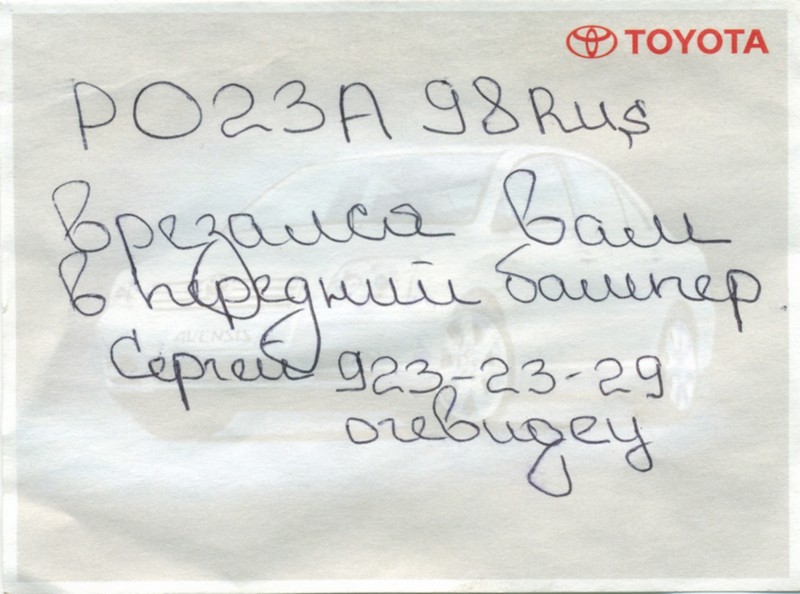 TOYOTA
РО23А 98Rus
врезался вам
в передний бампер.
Сергей 923-23-29
очевидец
AVENSIS